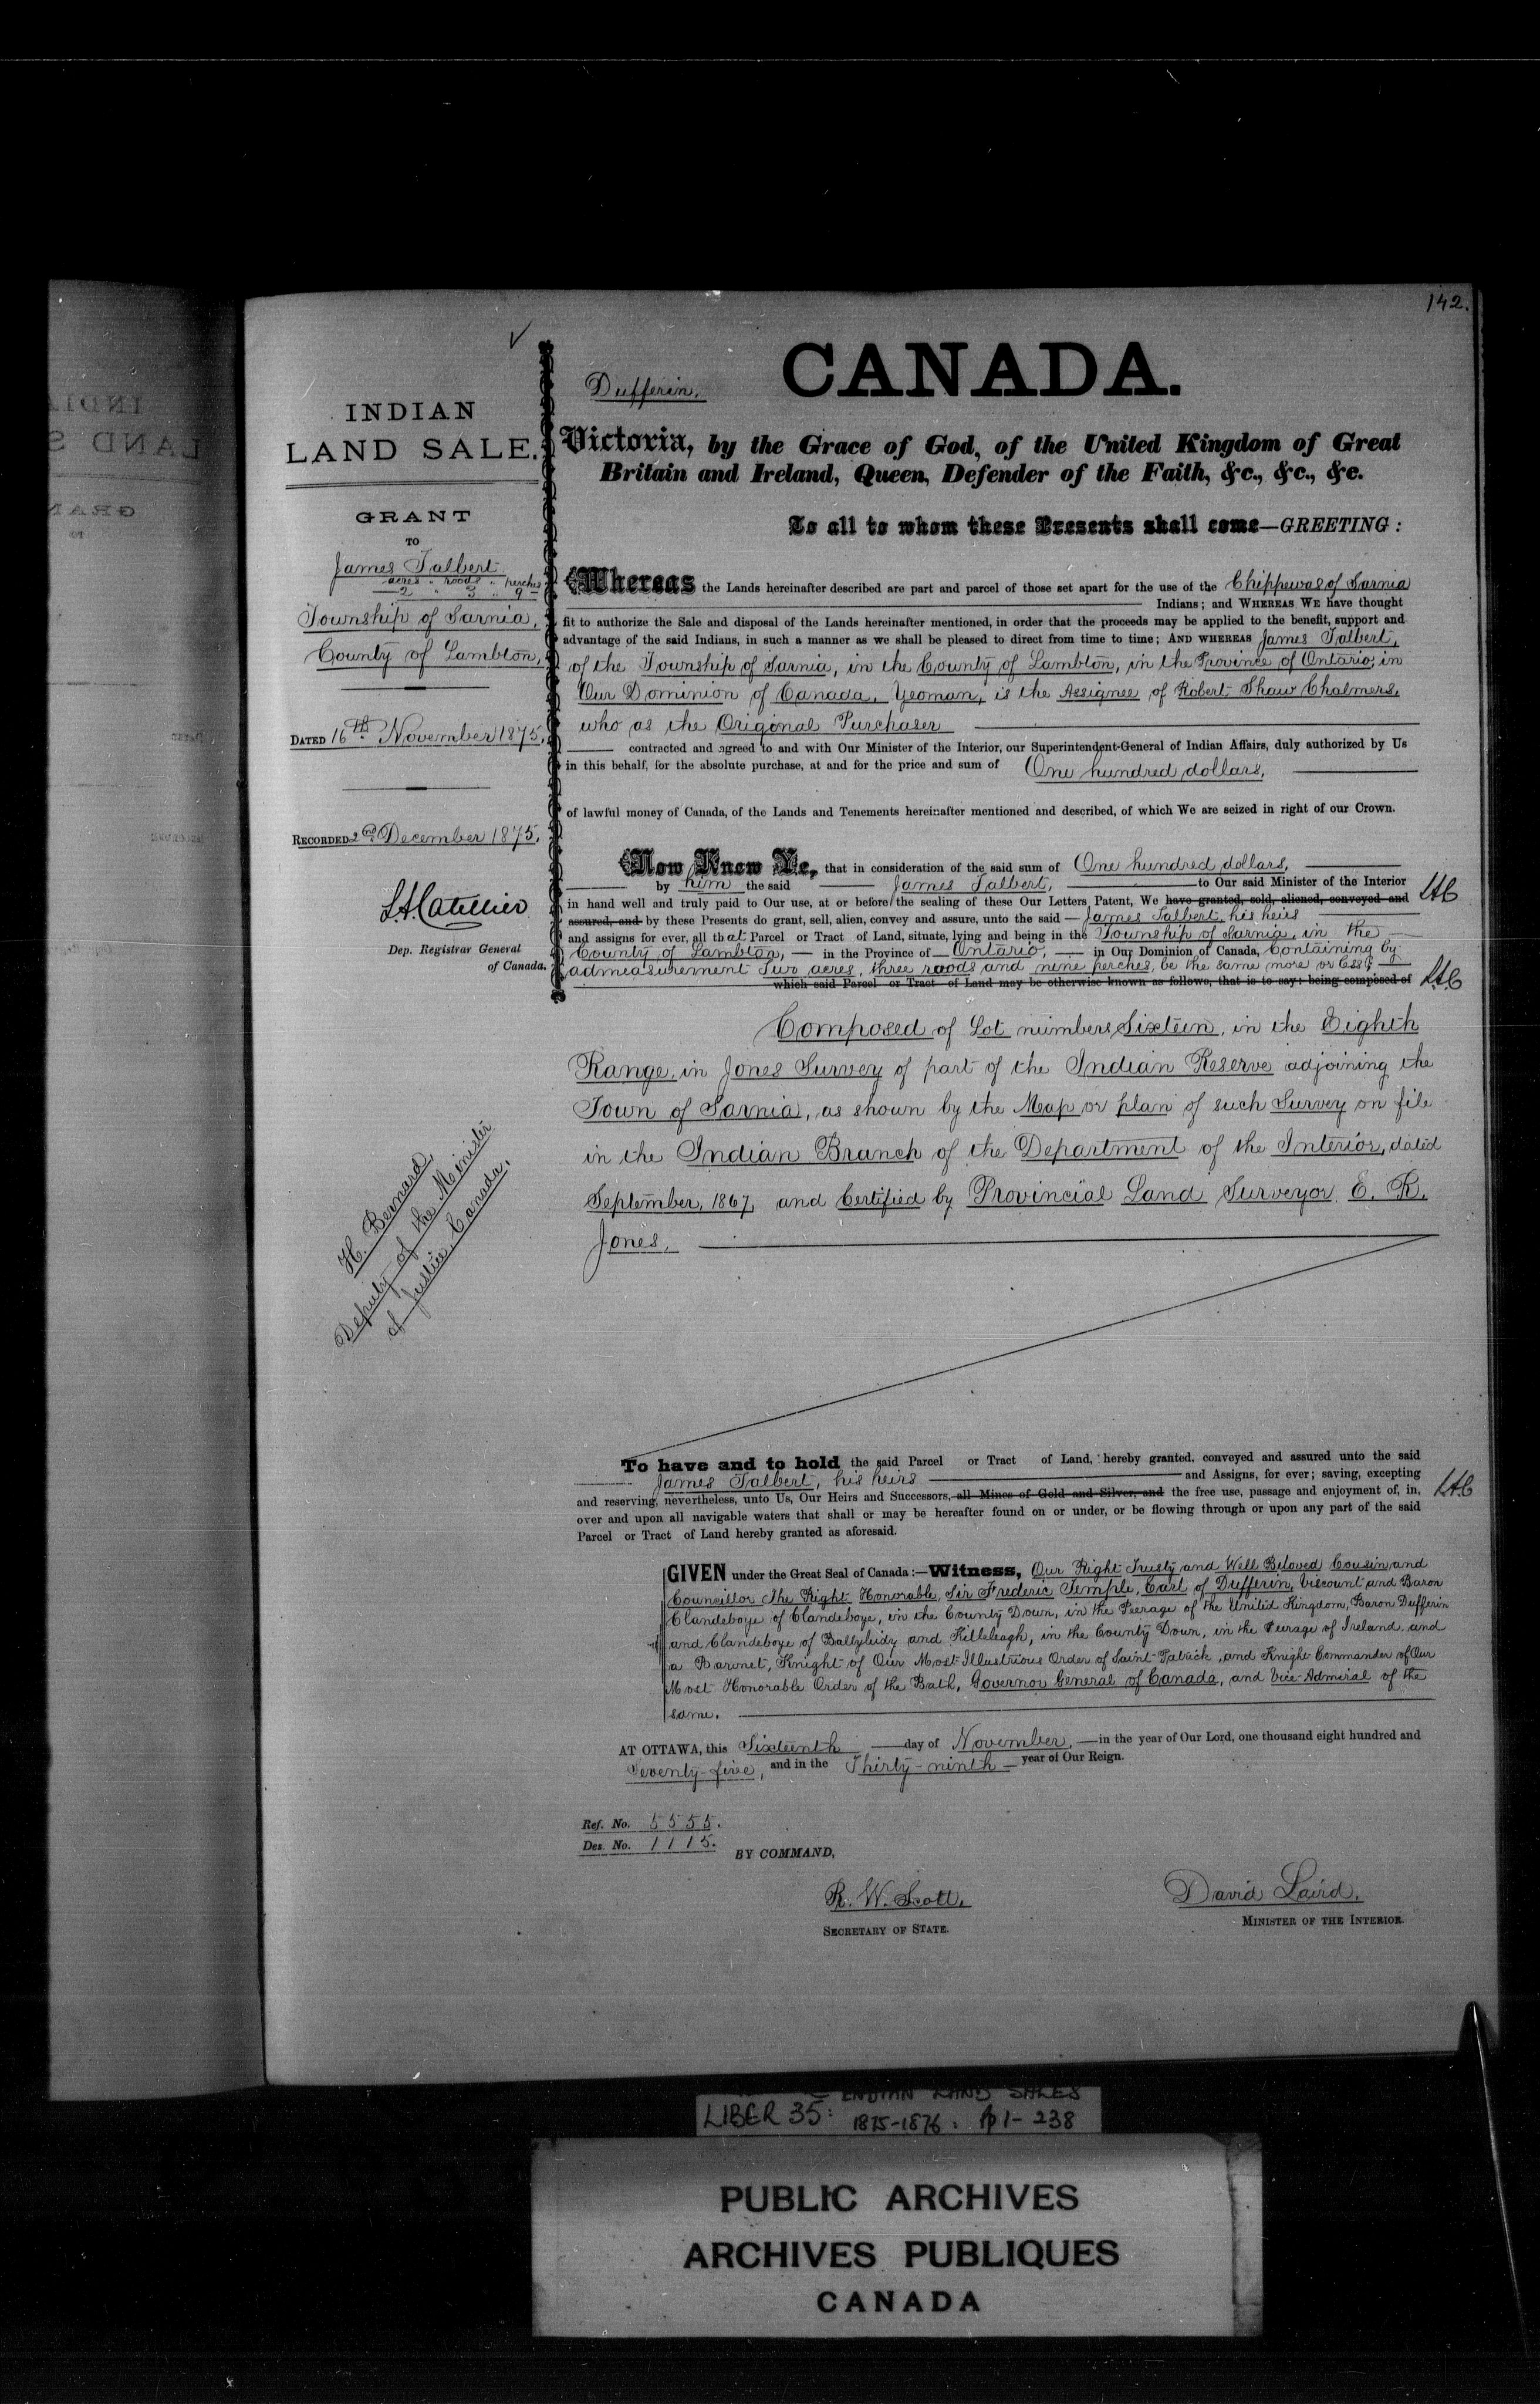 142.
CANADA.
Dufferin.
INDIAN
LAND SALE.
GRANT
TO
James Talbert
acres " roods " perches
2 " 3 " 9
Township of Sarnia,
County of Lambton,
DATED 16th November 1875.
RECORDED 2nd December 1875.
L.A. Catellier
Dep. Registrar General
of Canada.
H. Bernard,
Deputy of the Minister
of Justice, Canada.
Victoria, by the Grace of God, of the United Kingdom of Great
Britain and Ireland, Queen, Defender of the Faith, &c., &c., &c.
To all to whom these Presents shall come—GREETING :
Whereas the Lands hereinafter described are part and parcel of those set apart for the use of the Chippewas of Sarnia
Indians; and WHEREAS WE have thought
fit to authorize the Sale and disposal of the Lands hereinafter mentioned, in order that the proceeds may be applied to the benefit, support and
advantage of the said Indians, in such a manner as we shall be pleased to direct from time to time; AND WHEREAS James Talbert,
of the Township of Sarnia, in the County of Lambton, in the Province of Ontario, in
Our Dominion of Canada, Yeoman, is the Assignee of Robert Shaw Chalmers,
who as the Original Purchaser
contracted and agreed to and with Our Minister of the Interior, our Superintendent-General of Indian Affairs, duly authorized by Us
in this behalf, for the absolute purchase, at and for the price and sum of One hundred dollars,
of lawful money of Canada, of the Lands and Tenements hereinafter mentioned and described, of which We are seized in right of our Crown.
Now Know Ye, that in consideration of the said sum of One hundred dollars,
by him the said James Talbert, to Our said Minister of the Interior
in hand well and truly paid to Our use, at or before the sealing of these Our Letters Patent, We have granted, sold, aliened, conveyed and LAC
assured, and by these Presents do grant, sell, alien, convey and assure, unto the said — James Talbert, his heirs
and assigns for ever, all that Parcel or Tract of Land, situate, lying and being in the Township of Sarnia, in the
County of Lambton, — in the Province of Ontario, — in Our Dominion of Canada, Containing by
admeasurement Two acres, three roods and nine perches, be the same more or less;
which said Parcel or Tract of Land may be otherwise known as follows, that is to say: being composed of LAC
Composed of Lot numbers Sixteen, in the Eighth
Range, in Jones Survey of part of the Indian Reserve adjoining the
Town of Sarnia, as shown by the Map or plan of such Survey on file
in the Indian Branch of the Department of the Interior, dated
September, 1867, and Certified by Provincial Land Surveyor E. R.
Jones.
To have and to hold the said Parcel or Tract of Land, hereby granted, conveyed and assured unto the said
James Talbert, his heirs and Assigns, for ever; saving, excepting
and reserving, nevertheless, unto Us, Our Heirs and Successors, all Mines of Gold and Silver, and the free use, passage and enjoyment of, in, LAC
over and upon all navigable waters that shall or may be hereafter found on or under, or be flowing through or upon any part of the said
Parcel or Tract of Land hereby granted as aforesaid.
GIVEN under the Great Seal of Canada :—Witness, Our Right Trusty and Well Beloved Cousin and
Councillor The Right Honorable, Sir Frederic Temple, Earl of Dufferin, Viscount and Baron
Clandeboye of Clandeboye, in the County Down, in the Peerage of the United Kingdom, Baron Dufferin
and Clandeboye of Ballyleidy and Killeleagh, in the County Down, in the Peerage of Ireland and
a Baronet, Knight of Our Most Illustrious Order of Saint Patrick, and Knight Commander of Our
Most Honorable Order of the Bath, Governor General of Canada, and Vice-Admiral of the
same.
AT OTTAWA, this Sixteenth day of November, — in the year of Our Lord, one thousand eight hundred and
Seventy-five, and in the Thirty-ninth — year of Our Reign.
Ref. No. 5555.
Des. No. 1115.
BY COMMAND,
R. W. Scott,
SECRETARY OF STATE.
David Laird,
MINISTER OF THE INTERIOR.
INDIAN LAND SALES
LIBER 35: 1875-1876: pp 1-238
PUBLIC ARCHIVES
ARCHIVES PUBLIQUES
CANADA